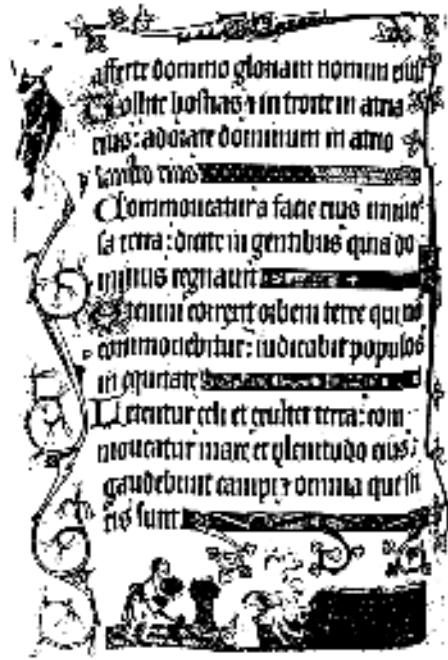 afferte domino gloriam nomini eius
Tollite hostias et introite in atria
eius: adorate dominum in atrio
sancto eius
Commoueatur a facie eius uniuer
sa terra: dicite in gentibus quia do
minus regnauit
Etenim correxit orbem terre qui non
commouebitur: iudicabit populos
in equitate
Letentur celi et exultet terra: com
moueatur mare et plenitudo eius:
gaudebunt campi et omnia que in
eis sunt